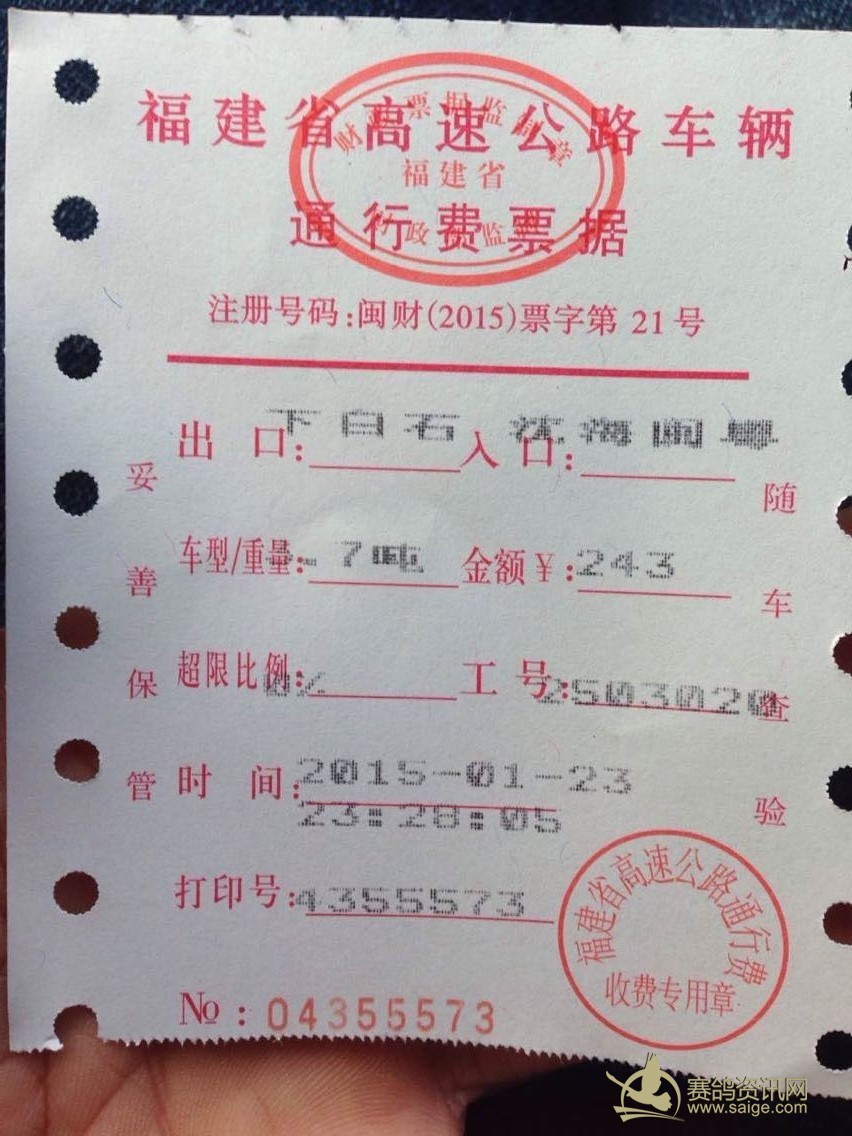 福建省高速公路车辆
通行费票据
财政票据监制章
福建省
财政 监
注册号码:闽财(2015)票字第 21 号
出口: 下白石 入口: 沈海闽粤
车型/重量: .7吨 金额¥: 243
超限比例: 0% 工号: 2503020
时间: 2015-01-23
23:28:05
打印号: 4355573
№: 04355573
妥善保管
随车查验
福建省高速公路通行费
收费专用章
赛鸽资讯网
www.saige.com